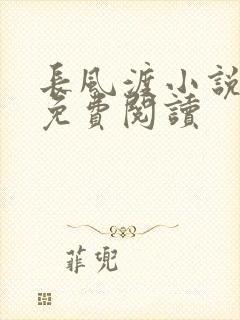 長風渡小說
免費閱讀
菲兜